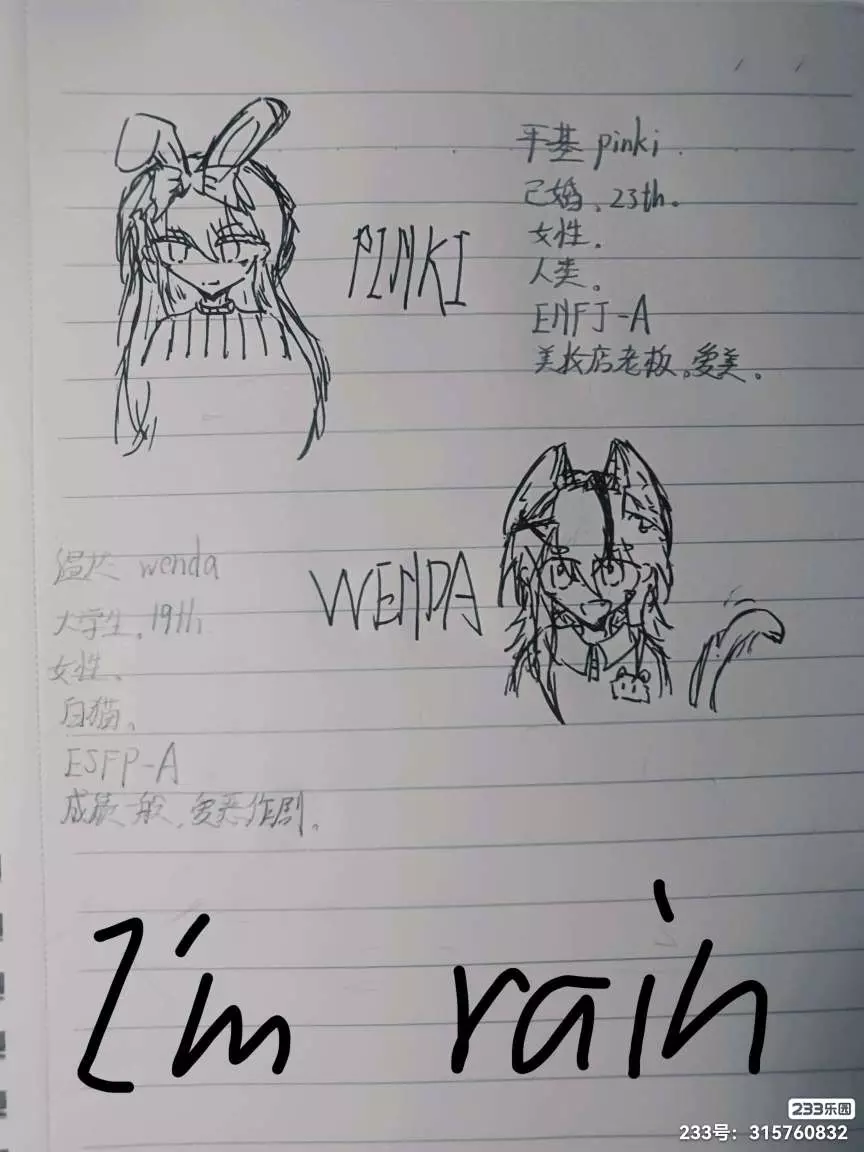 平基 pinki.
已婚、23th。
女性.
人类。
ENFJ-A
美妆店老板。爱美。
PINKI
WENDA
温达 wenda
大学生.19th
女性、
白猫、
ESFP-A
成绩一般、爱恶作剧。
I'm rain
233乐园
233号：315760832